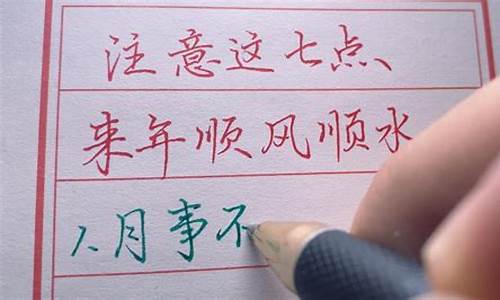 注意这七点
来年顺风顺水
1、月事不